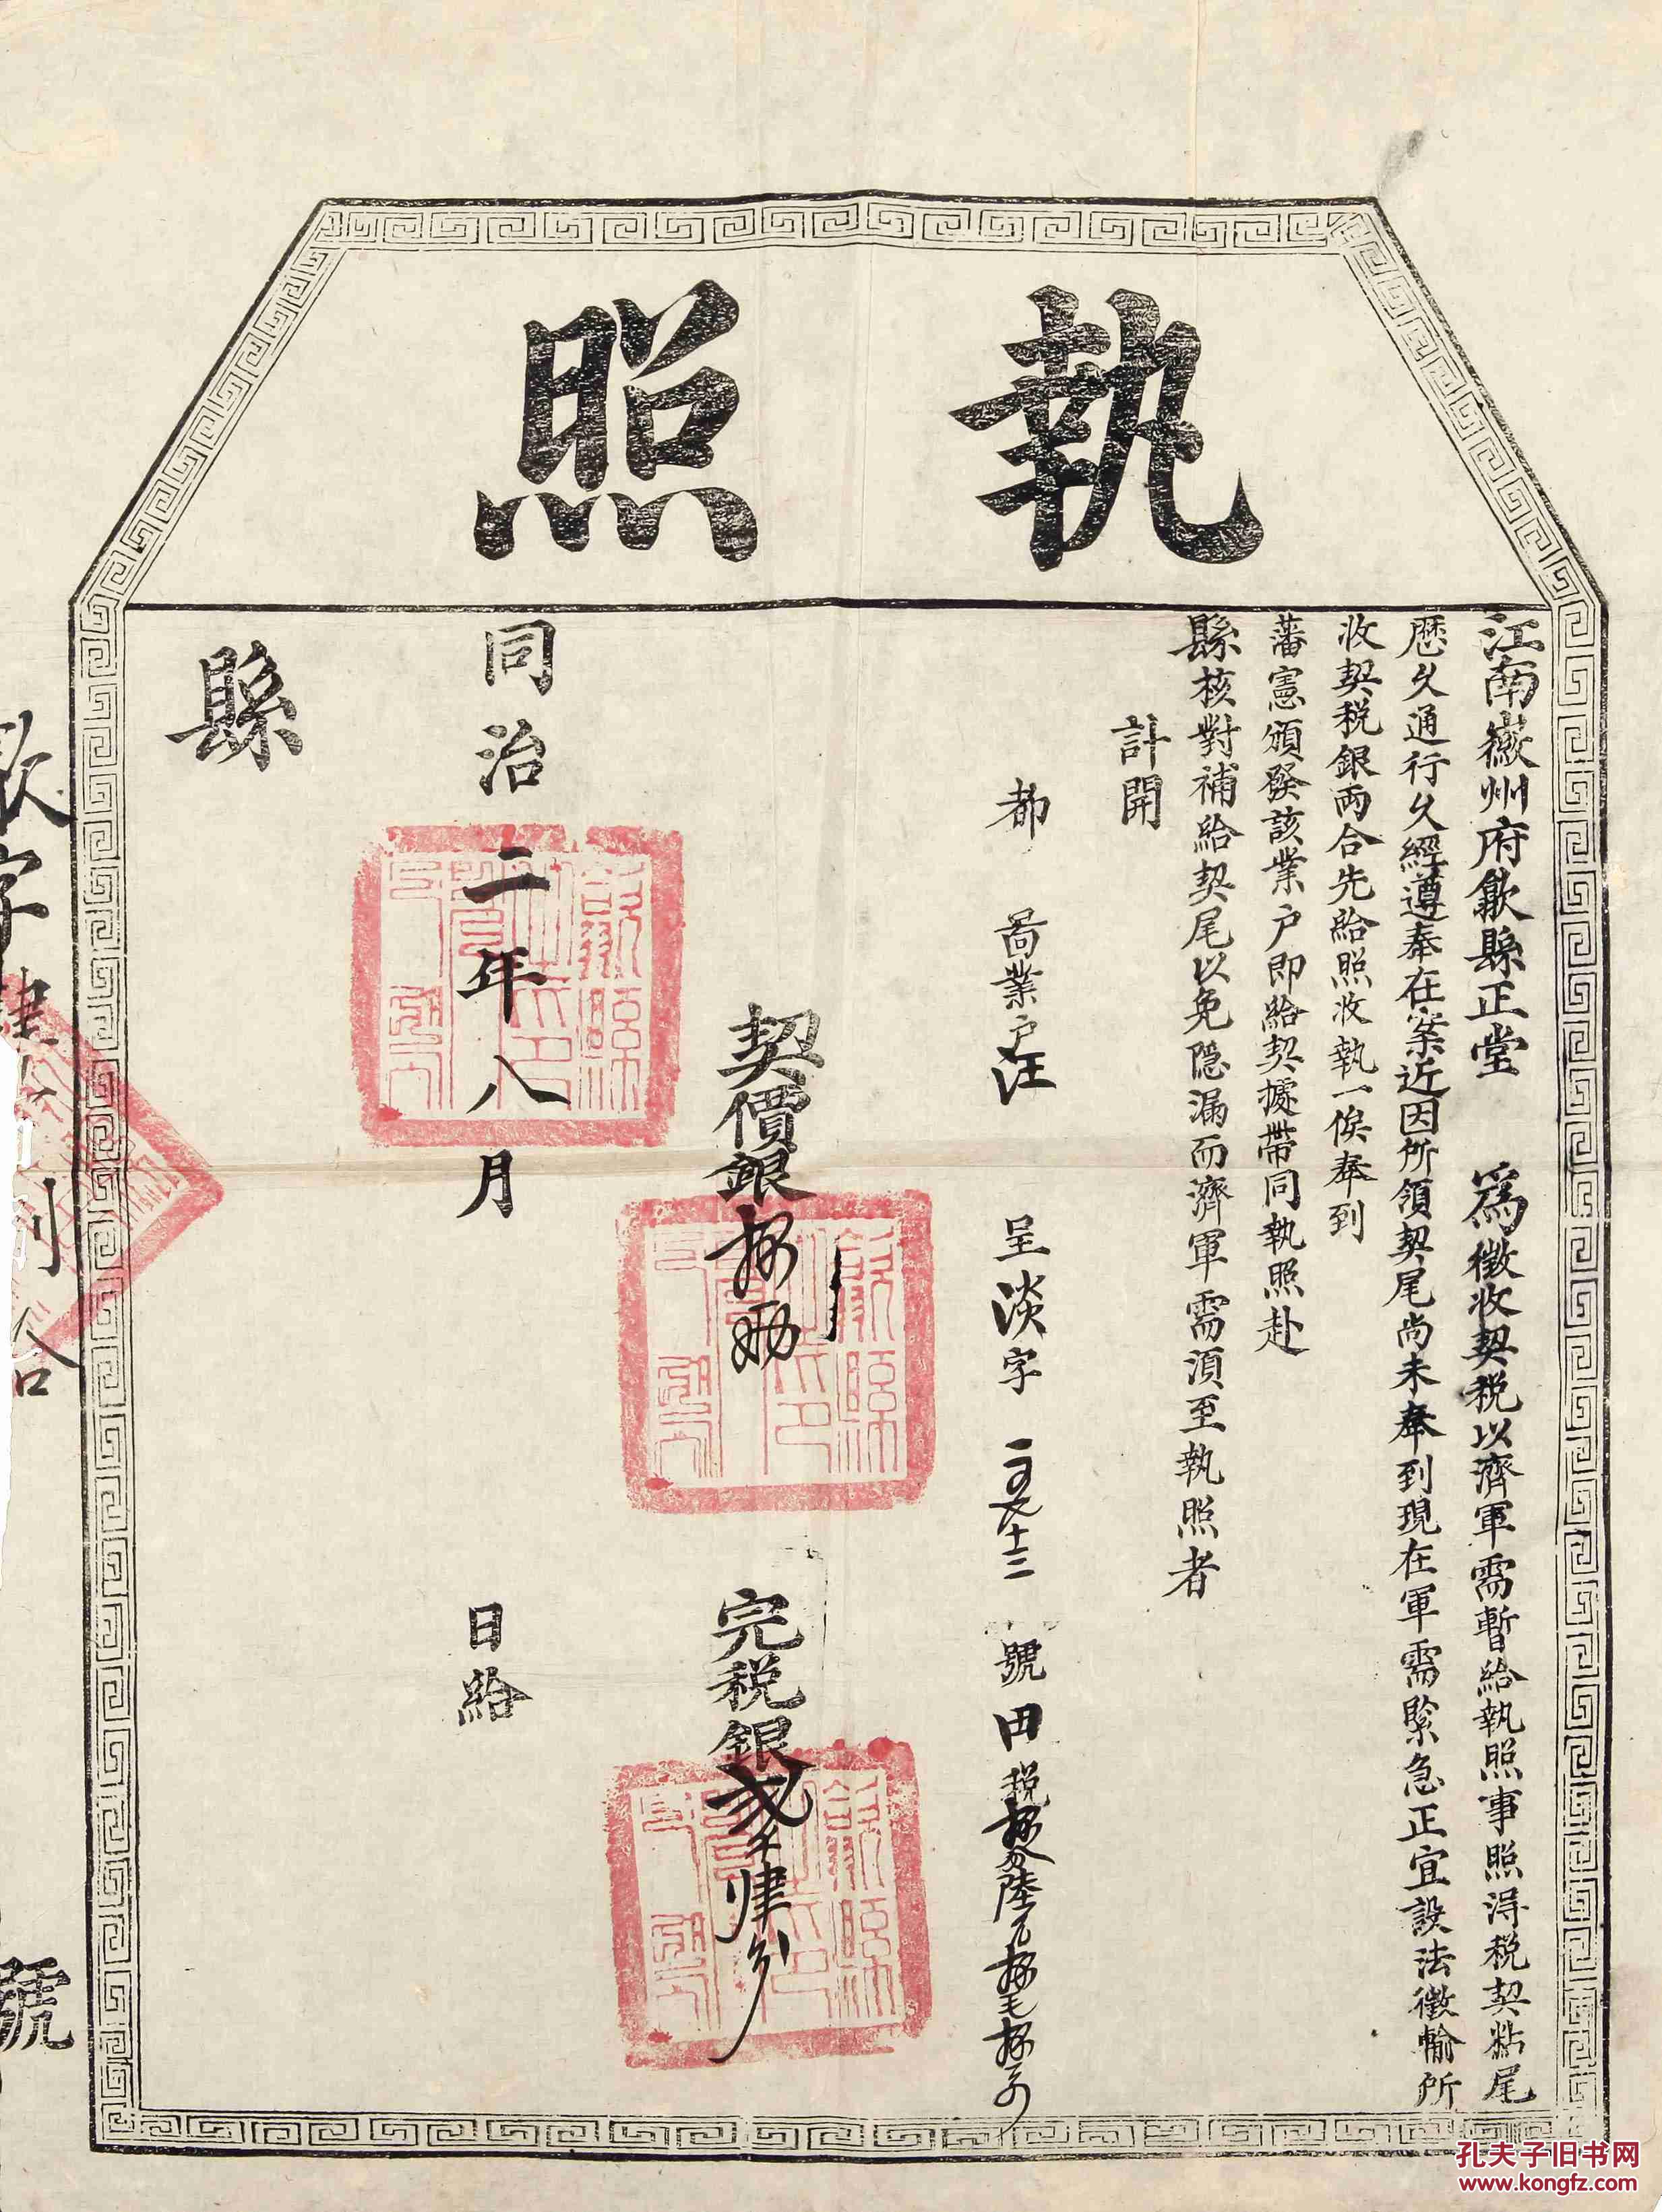 執照
江南徽州府歙縣正堂　為徵收契税以濟軍需暫給執照事照得税契粘尾
歷久通行久經遵奉在案近因所領契尾尚未奉到現在軍需緊急正宜設法徵輸所
收契税銀両合先給照收執一俟奉到
藩憲頒發該業户即給契據帶同執照赴
縣核對補給契尾以免隐漏而濟軍需須至執照者
計開
都　啚業户汪　呈淡字　號田税
契價銀　両　完税銀　肆分
同治二年八月　日給
縣
歙字　號
孔夫子旧书网
www.kongfz.com